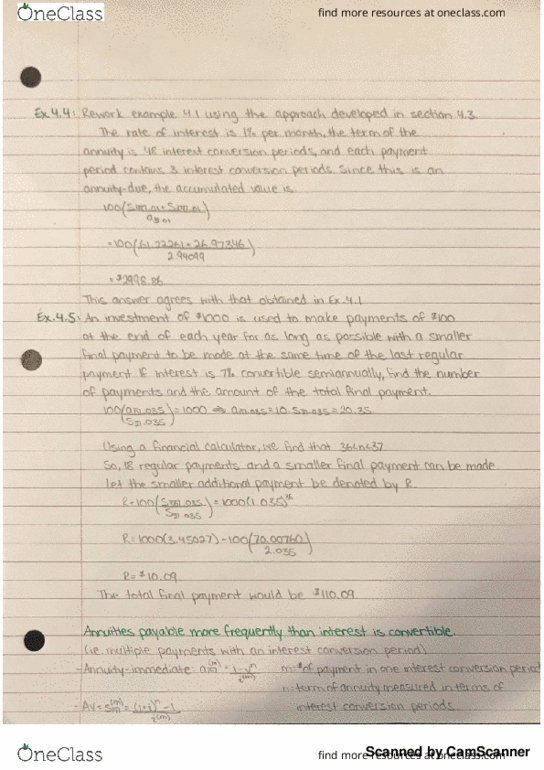 OneClass
find more resources at oneclass.com
Ex.4.4: Rework example 4.1 using the approach developed in section 4.3
The rate of interest is 1% per month, the term of the
annuity is 48 interest conversion periods, and each payment
period contains 3 interest conversion periods. Since this is an
annuity-due, the accumulated value is
=100(61.22261+26.97346
2.94099
=$2998.86
This answer agrees with that obtained in Ex.4.1
Ex.4.5: An investment of $1000 is used to make payments of $100
at the end of each year for as long as possible with a smaller
final payment to be made at the same time of the last regular
payment. If interest is 7% convertible semiannually, find the number
of payments and the amount of the total final payment.
=1000 ⇒ =10·S2].035=20.35
Using a financial calculator, we find that 36<n<37
So, 18 regular payments and a smaller final payment can be made
let the smaller additional payment be denoted by R.
R=100(S36].035/S2].035)=1000(1.035)³⁶
R=1000(3.45027)-100(70.00760
2.035
R=$10.09
The total final payment would be $110.09
Annuities payable more frequently than interest is convertible
(i.e. multiple payments with an interest conversion period)
-Annuity-immediate: m=# of payment in one interest conversion period
n=term of annuity measured in terms of
- AV= interest conversion periods
OneClass
find more resources at oneclass.com
Scanned by CamScanner